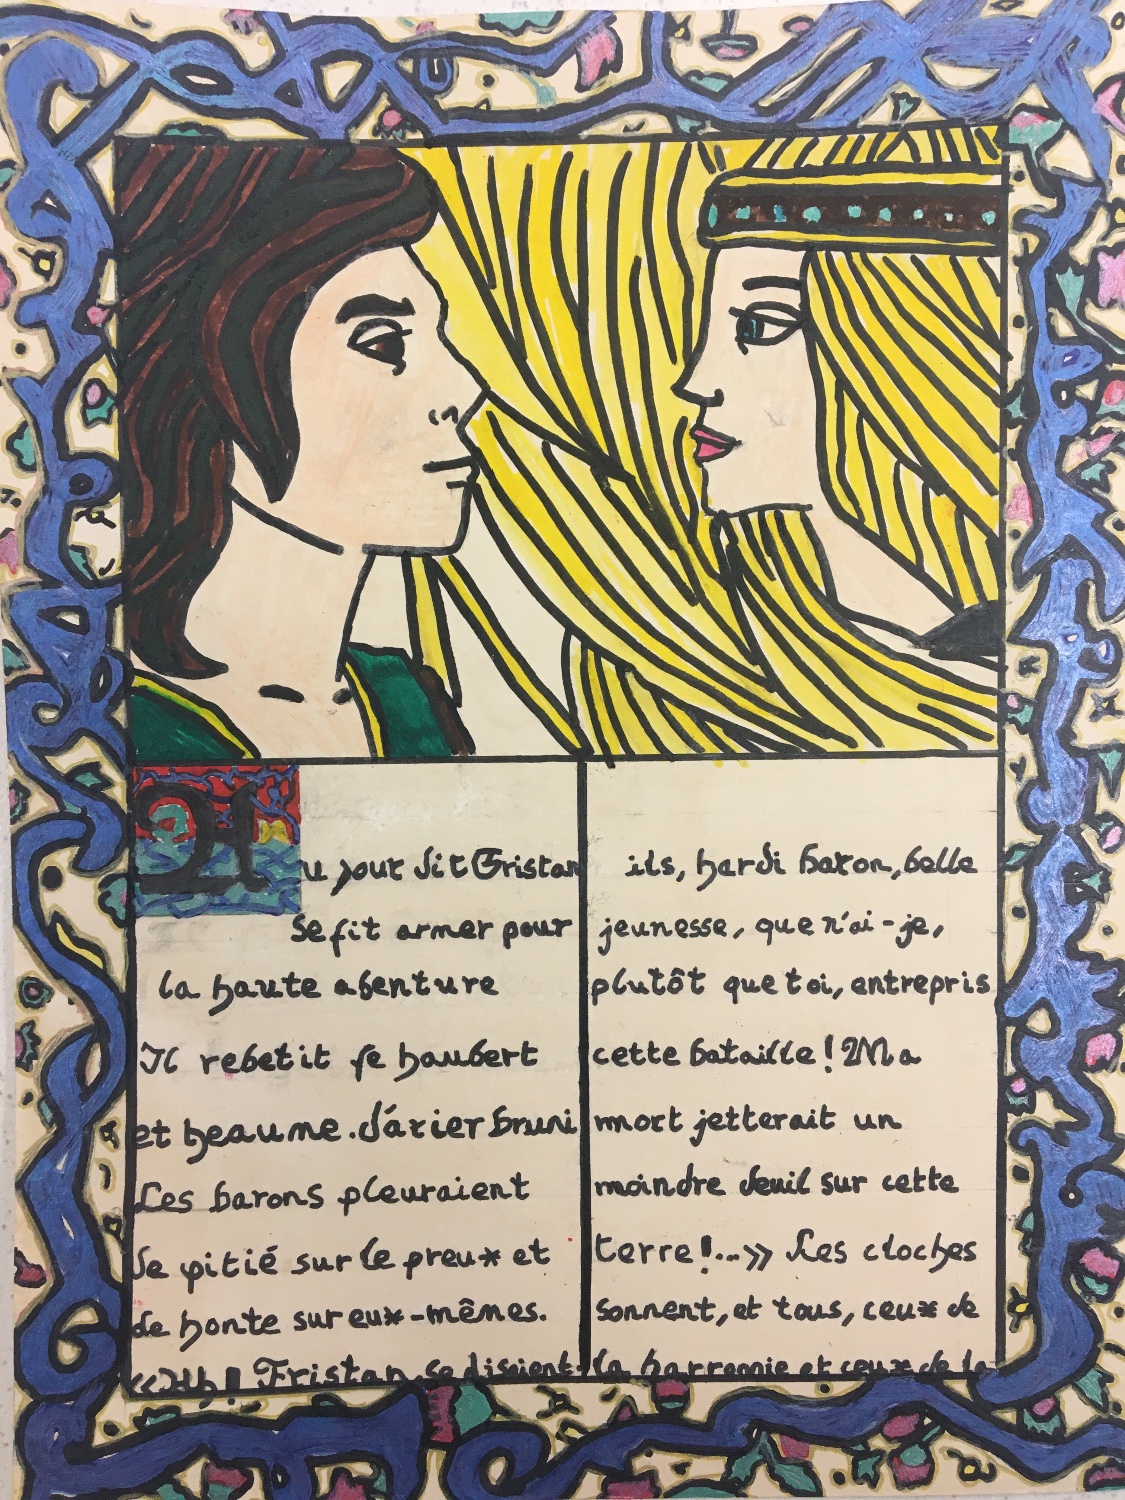 Au jour dit Tristan
se fit armer pour
la haute abenture
Il rebetit le haubert
et heaume d'acier bruni
Les barons pleuraient
de pitié sur le preux et
de honte sur eux-mêmes.
«Ah! Tristan, se disaient-
ils, hardi baron, belle
jeunesse, que n'ai-je,
plutôt que toi, entrepris
cette bataille! Ma
mort jetterait un
moindre deuil sur cette
terre!...» Les cloches
sonnent, et tous, ceux de
la barronnie et ceux de la